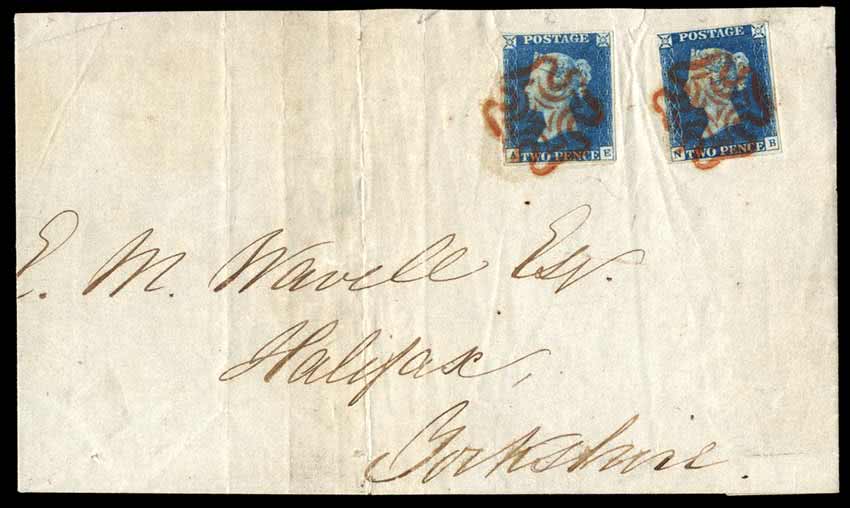 POSTAGE
TWO PENCE
A E
POSTAGE
TWO PENCE
N B
E. M. Wavell Esqr.
Halifax,
Yorkshire.